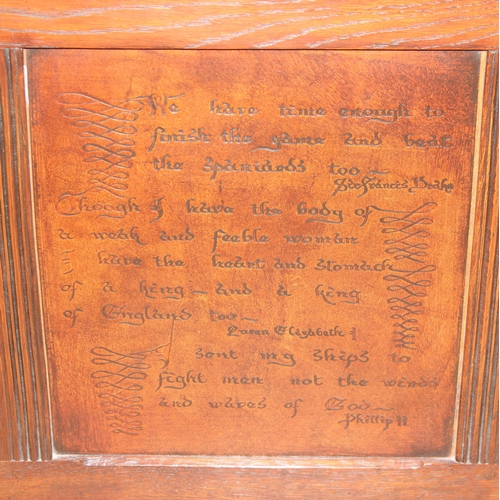 We have time enough to
finish the game and beat
the spaniards too ~
Sir Francis Drake
Though I have the body of
a weak and feeble woman
I have the heart and stomach
of a king ~ and a king
of England too ~
Queen Elizabeth I
I sent my ships to
fight men not the winds
and waves of God ~
Phillip II